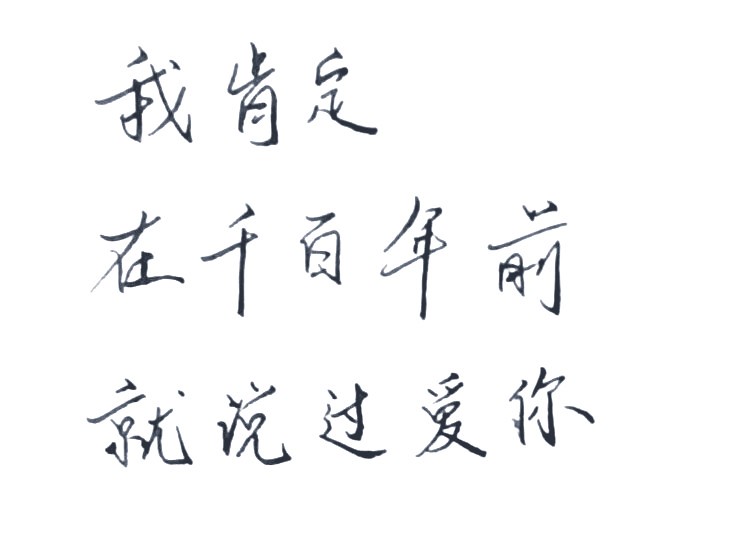 我肯定
在千百年前
就说过爱你